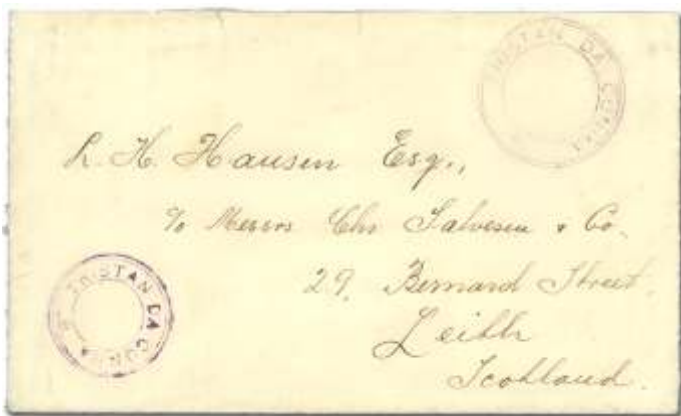 TRISTAN DA CUNHA
L. H. Hansen Esq.,
c/o Messrs Chr Salvesen & Co.
29, Bernard Street,
Leith
Scotland.
TRISTAN DA CUNHA